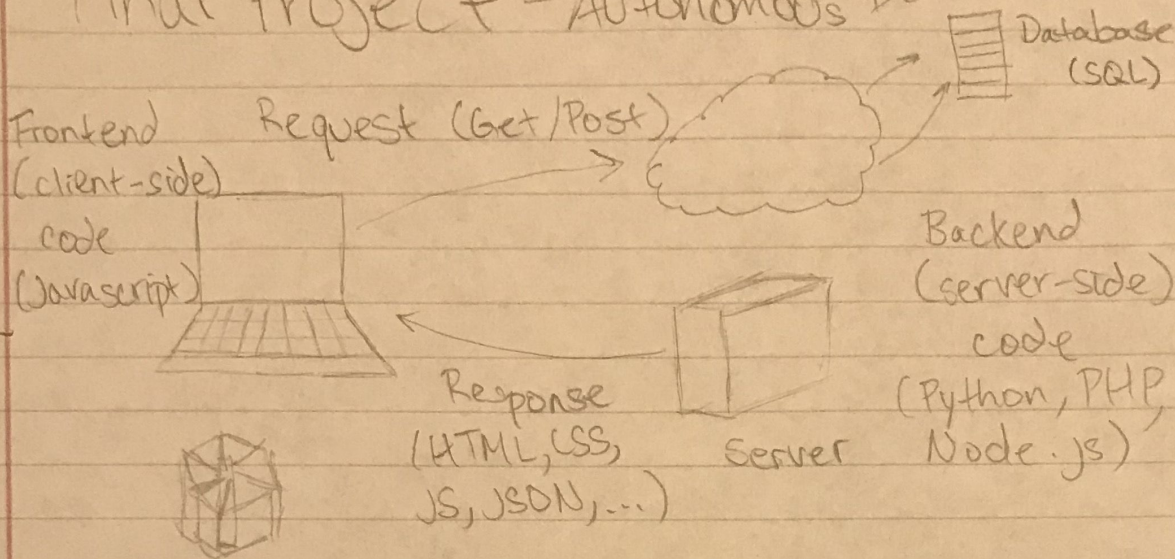 Final Project - Autonomous
Database
(SQL)
Frontend
(client-side)
code
(Javascript)
Request (Get/Post)
Backend
(server-side)
code
(Python, PHP,
Node.js)
Response
(HTML, CSS,
JS, JSON, ...)
Server